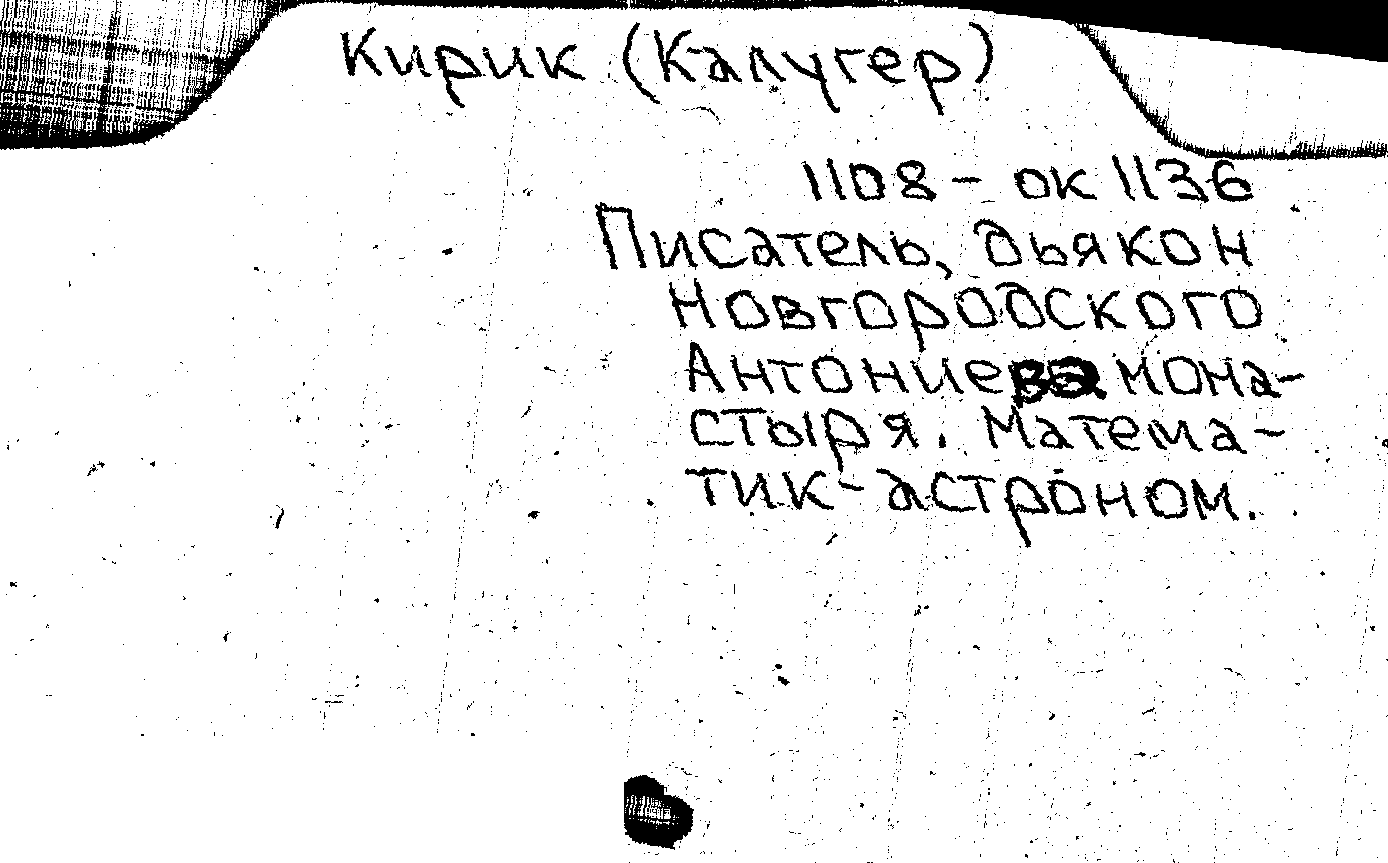 Кирик (Калугер)
1108 - ок 1136
Писатель, дьякон
Новгородского
Антониева мона-
стыря. Матема-
тик-астроном.